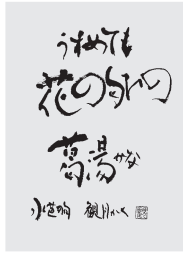 うすめても
花の匂の
葛湯かな
水巴句 観月かく